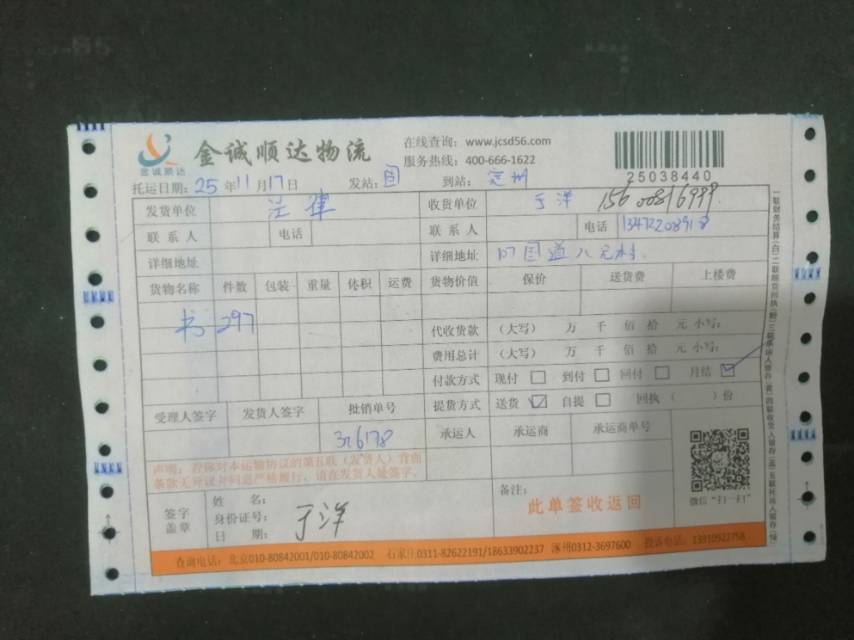 金诚顺达
金诚顺达物流
在线查询：www.jcsd56.com
服务热线：400-666-1622
25038440
托运日期：25年11月17日 发站：固 到站：定州
发货单位 法律 收货单位 于洋 15600816999
联系人 电话 联系人 电话 13472208918
详细地址 详细地址 107国道八元村
货物名称 件数 包装 重量 体积 运费 货物价值 保价 送货费 上楼费
书 297
代收货款 （大写） 万 千 佰 拾 元 小写：
费用总计 （大写） 万 千 佰 拾 元 小写：
付款方式 现付 到付 回付 月结
提货方式 送货 自提 回执（ ）份
受理人签字 发货人签字 批销单号 承运人 承运商 承运商单号
376178
声明：若你对本运输协议的第五联（发货人）背面
条款无异议并同意严格履行，请在发货人处签字。
微信“扫一扫”
签字
盖章
姓 名：
身份证号：
日 期：
于洋
备注：
此单签收返回
查询电话：北京010-80842001/010-80842002 石家庄0311-82622191/18633902237 涿州0312-3697600 投诉电话：13910922758